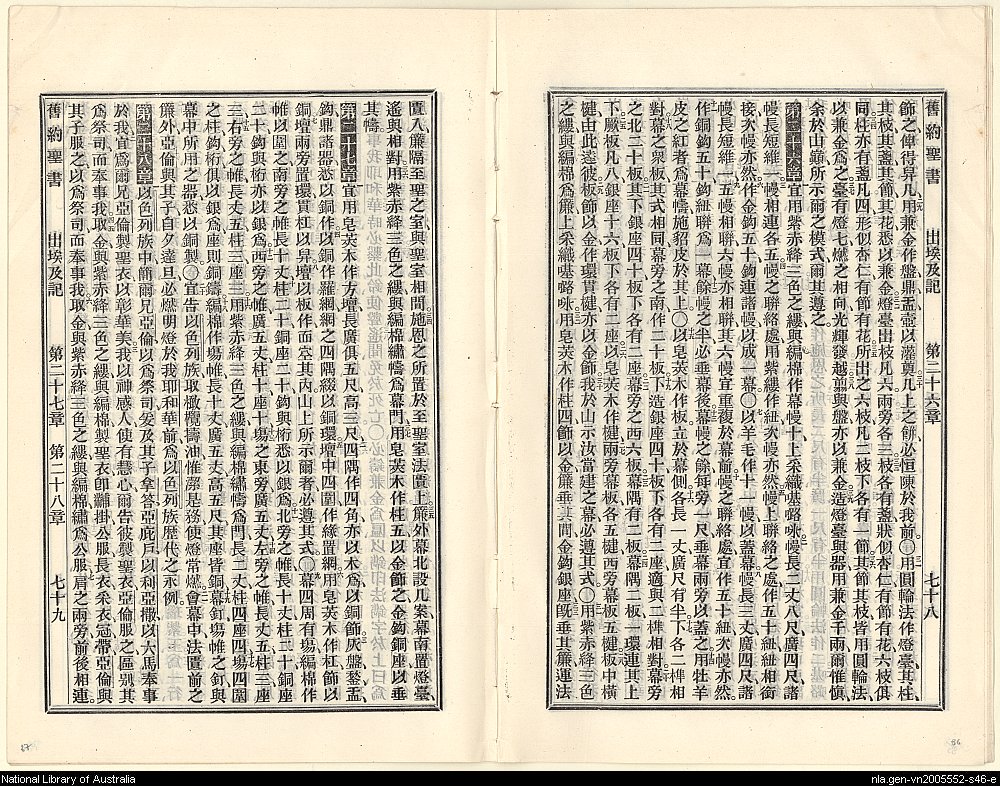 舊約聖書 出埃及記 第二十六章 七十八
飾之俾得舁凡用兼金作盤鼎盂壺以灌奠几上之餅必恒陳於我前〇用圓輪法作燈臺其柱
其枝其盞其節其花悉以兼金燈臺出枝凡六兩旁各三枝各有盞狀似杏仁有節有花六枝俱
同柱亦有盞凡四形似杏仁有節有花所出之六枝凡二枝下各有一節其節其枝皆用圓輪法
以兼金爲之臺有燈七燃之相向光輝發越剪與盤亦以兼金造燈臺與器用兼金千兩爾惟愼
余於山巓所示爾之模式爾其遵之
第二十六章 宜用紫赤絳三色之縷與編棉作幕幔十上采織𠼻𡀔𠯋幔長二丈八尺廣四尺諸
幔長短維一幔相連各五幔之聯絡處用紫縷作紐次幔亦然幔上聯絡之處作五十紐紐相銜
接次幔亦然作金鈎五十鈎連諸幔以成一幕〇以羊毛作十一幔以蓋幕幔長三丈廣四尺諸
幔長短維一五幔相聯六幔亦相聯其六幔宜重複於幕前幔之聯絡處宜作五十紐次幔亦然
作銅鈎五十鈎紐聯爲一幕餘幔之半必垂幕後幕幔之餘每旁一尺垂幕兩旁以蓋之用牡羊
皮之紅者爲幕幬施貂皮於其上〇以皂莢木作板立於幕側各長一丈廣尺有半下各二榫相
對幕之衆板其式相同幕旁之南作二十板下造銀座四十板下各有二座適與二榫相對幕旁
之北二十板其下銀座四十板下各有二座幕旁之西六板幕隅有二板幕隅二板一環連其上
下厥板凡八銀座十六板下各有二座以皂莢木作楗五楗西旁幕板五楗板中橫
楗由此遠彼板飾以金作環貫楗亦以金飾我於山示汝當建之幕必遵其式〇用紫赤絳三色
之縷與編棉爲簾上采織𠼻𡀔𠯋用皂莢木作柱四飾以金簾垂其間金鈎銀座旣垂其簾運法
匱入簾隔至聖之室與聖室相間施恩之所置於至聖室法匱上簾外幕北設几案幕南置燈臺
遙與相對用紫赤絳三色之縷與編棉繡幬爲幕門用皂莢木作柱五以金飾之金鈎銅座以垂
其幬
第二十七章 宜用皂莢木作方壇長廣俱五尺高三尺四隅作四角亦以木爲以銅飾灰盤鍫盂
鈎鼎諸器悉以銅作以銅作羅網網之四隅綴以銅環壇中四圍作緣置網用皂莢木作杠飾以
銅壇兩旁置環以貫杠以舁壇以板作而空其內山上所示爾者必遵其式〇幕四周有場編棉作
帷以圍之南旁之帷長十丈柱二十銅座二十鈎與桁悉以銀爲北旁之帷長十丈柱二十銅座
二十鈎與桁亦以銀爲西旁之帷廣五丈柱十座十場之東旁廣五丈左旁之帷長丈五柱三座
三右旁之帷長丈五柱三座三用紫赤絳三色之縷與編棉繡幬爲門長二丈柱四座四場四圍
之柱鈎桁俱以銀爲座則銅鑄編棉作場帷長十丈廣五丈高五尺其座皆銅幕釘場帷之釘與
幕中所用之器悉以銅製〇宜告以色列族取橄欖擣油惟潔是務使燈常燃會幕中法匱前之
簾外亞倫與其子自夕達旦必燃明燈於我耶和華前爲以色列族歷代之永例
第二十八章 以色列族中簡爾兄亞倫以爲祭司爰及其子拿答亞庇戶以利亞撒以大馬奉事
於我宜爲爾兄亞倫製聖衣以彰華美我以神感人使有慧心爾告彼製聖衣亞倫服之區別其
爲祭司而奉事我取金與紫赤絳三色之縷與編棉製聖衣卽黼掛公服長衣采衣冠帶亞倫與
其子服之以爲祭司而奉事我取金與紫赤絳三色之縷與編棉繡爲公服肩之兩旁前後相連
舊約聖書 出埃及記 第二十七章 第二十八章 七十九
86
87
National Library of Australia
nla.gen-vn2005552-s46-e